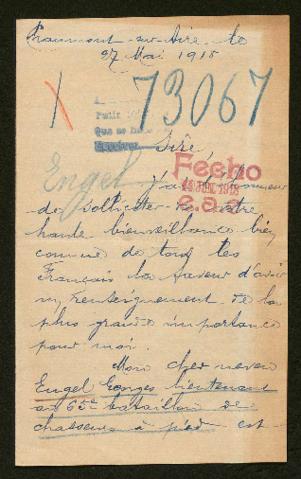 Chaumont-sur-Aire, le
27 Mai 1918
73067
Sire,
Engel
Fecho
1918
J'ai l'honneur
de solliciter de votre
haute bienveillance bien
connue de tous les
Français la faveur d'avoir
un renseignement de la
plus grande importance
pour moi.
Mon cher neveu
Engel Georges lieutenant
au 65e bataillon de
chasseurs à pied est